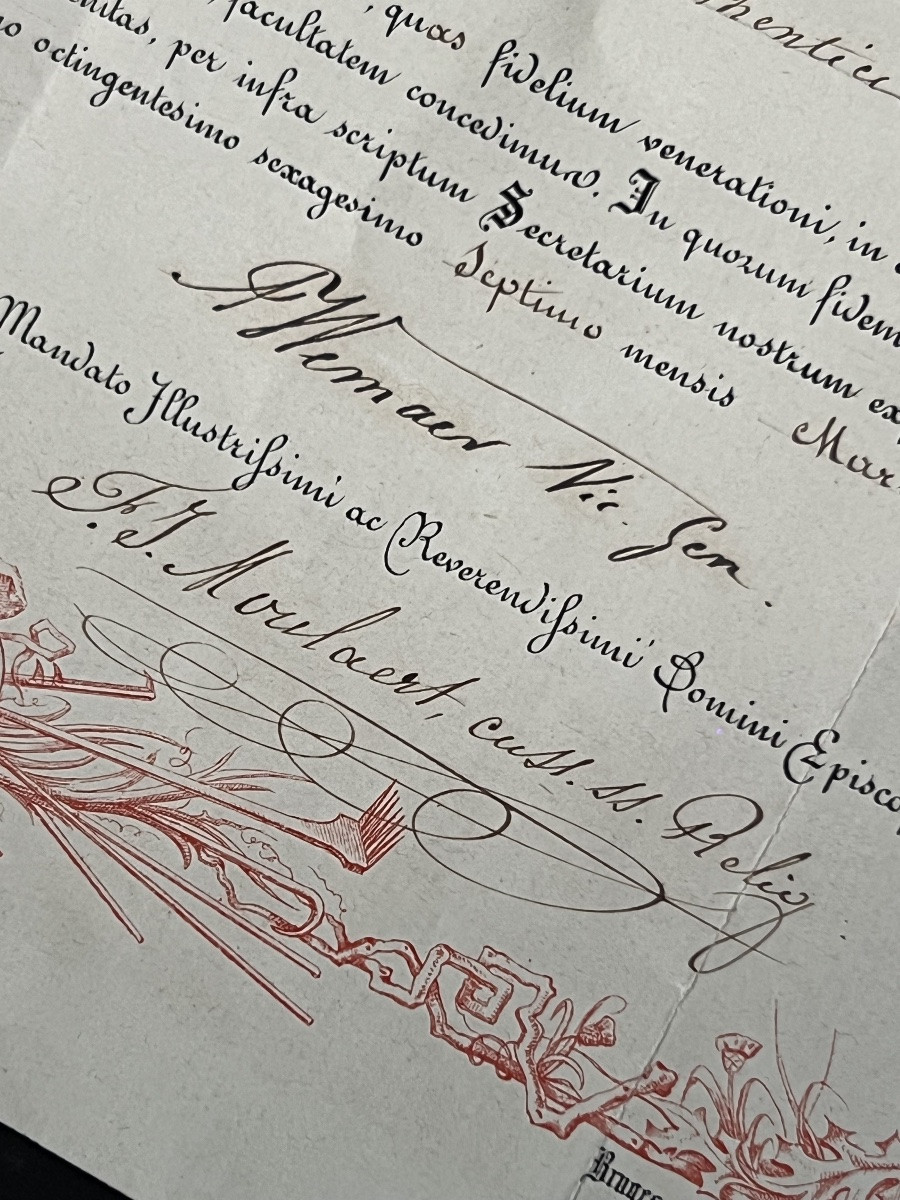 , quas fidelium venerationi, in
facultatem concedimus. In quorum fidem
per infra scriptum Secretarium nostrum
octingentesimo sexagesimo Septimo mensis
Vic. Gen.
Mandato Illustrissimi ac Reverendissimi Domini
F. J. Moulaert, cust. ss. Reliq